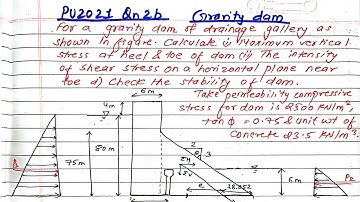 PU2021 Qn2b Gravity dam
For a gravity dam of drainage gallery as
shown in figure. Calculate i) Maximum vertical
stress at Heel & toe of dam (ii) The intensity
of shear stress on a horizontal plane near
toe d) Check the stability of dam.
Take permeability compressive
stress for dam is 2500 KN/m²,
tan ϕ = 0.75 & unit wt of
concrete 23.5 KN/m³
6m
4m
80m
75m
2
3
8m
e
28.052
6m
P1
P2